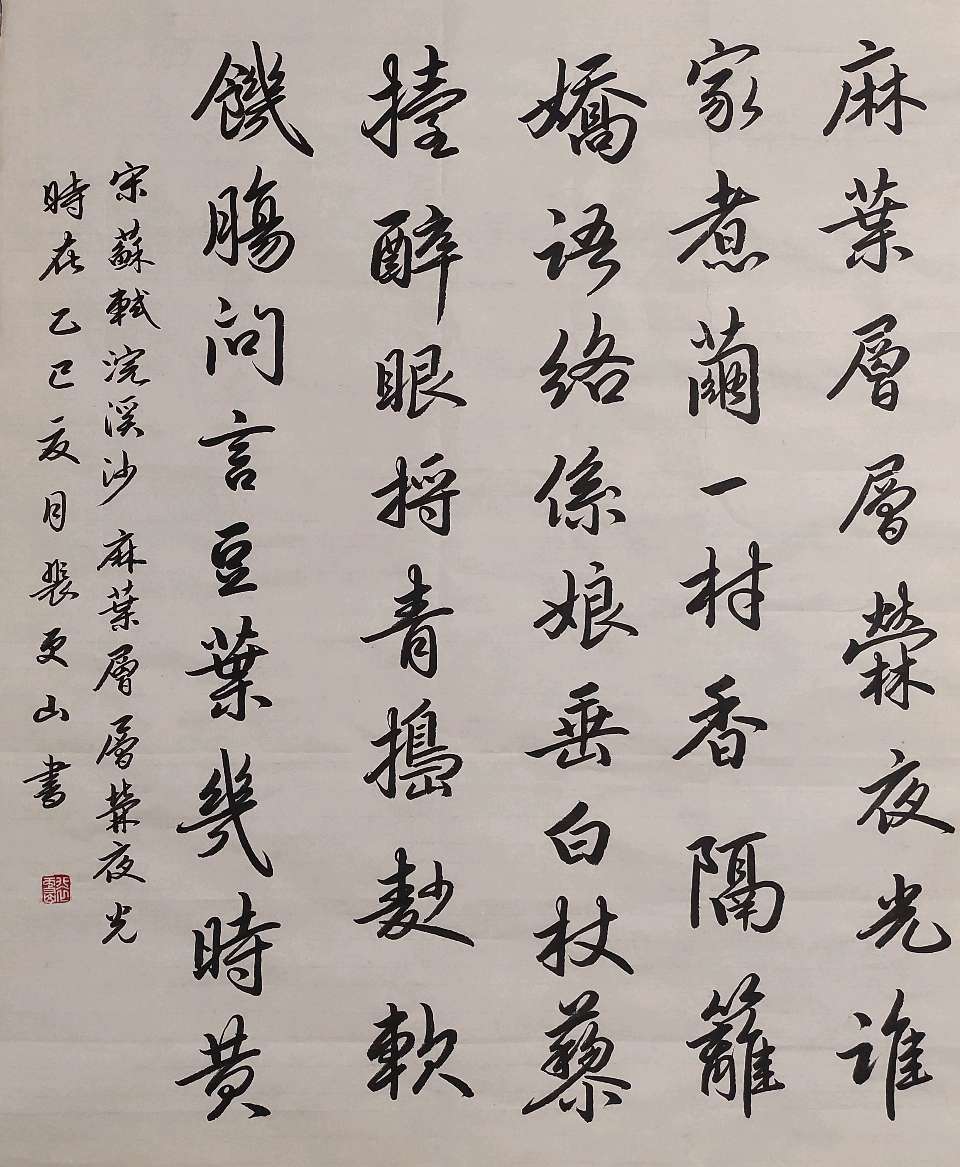 麻葉層層檾夜光誰
家煮繭一村香隔籬
嬌語絡係娘垂白杖藜
擡醉眼捋青搗麨軟
饑腸問言豆葉幾時黄
宋蘇軾浣溪沙麻葉層層檾夜光
時在乙巳夏月張更山書